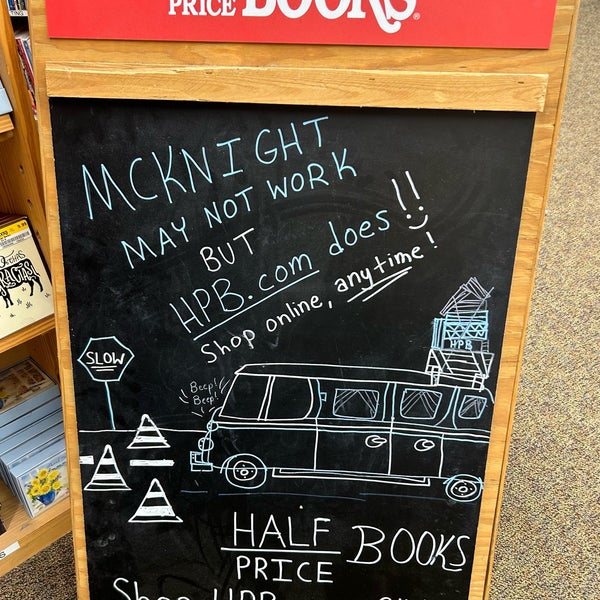 PRICE BOOKS®
MCKNIGHT
MAY NOT WORK
BUT
HPB.com does!!
Shop online, anytime!
HPB
SLOW
Beep!
Beep!
HALF
PRICE
BOOKS
Shop HPB